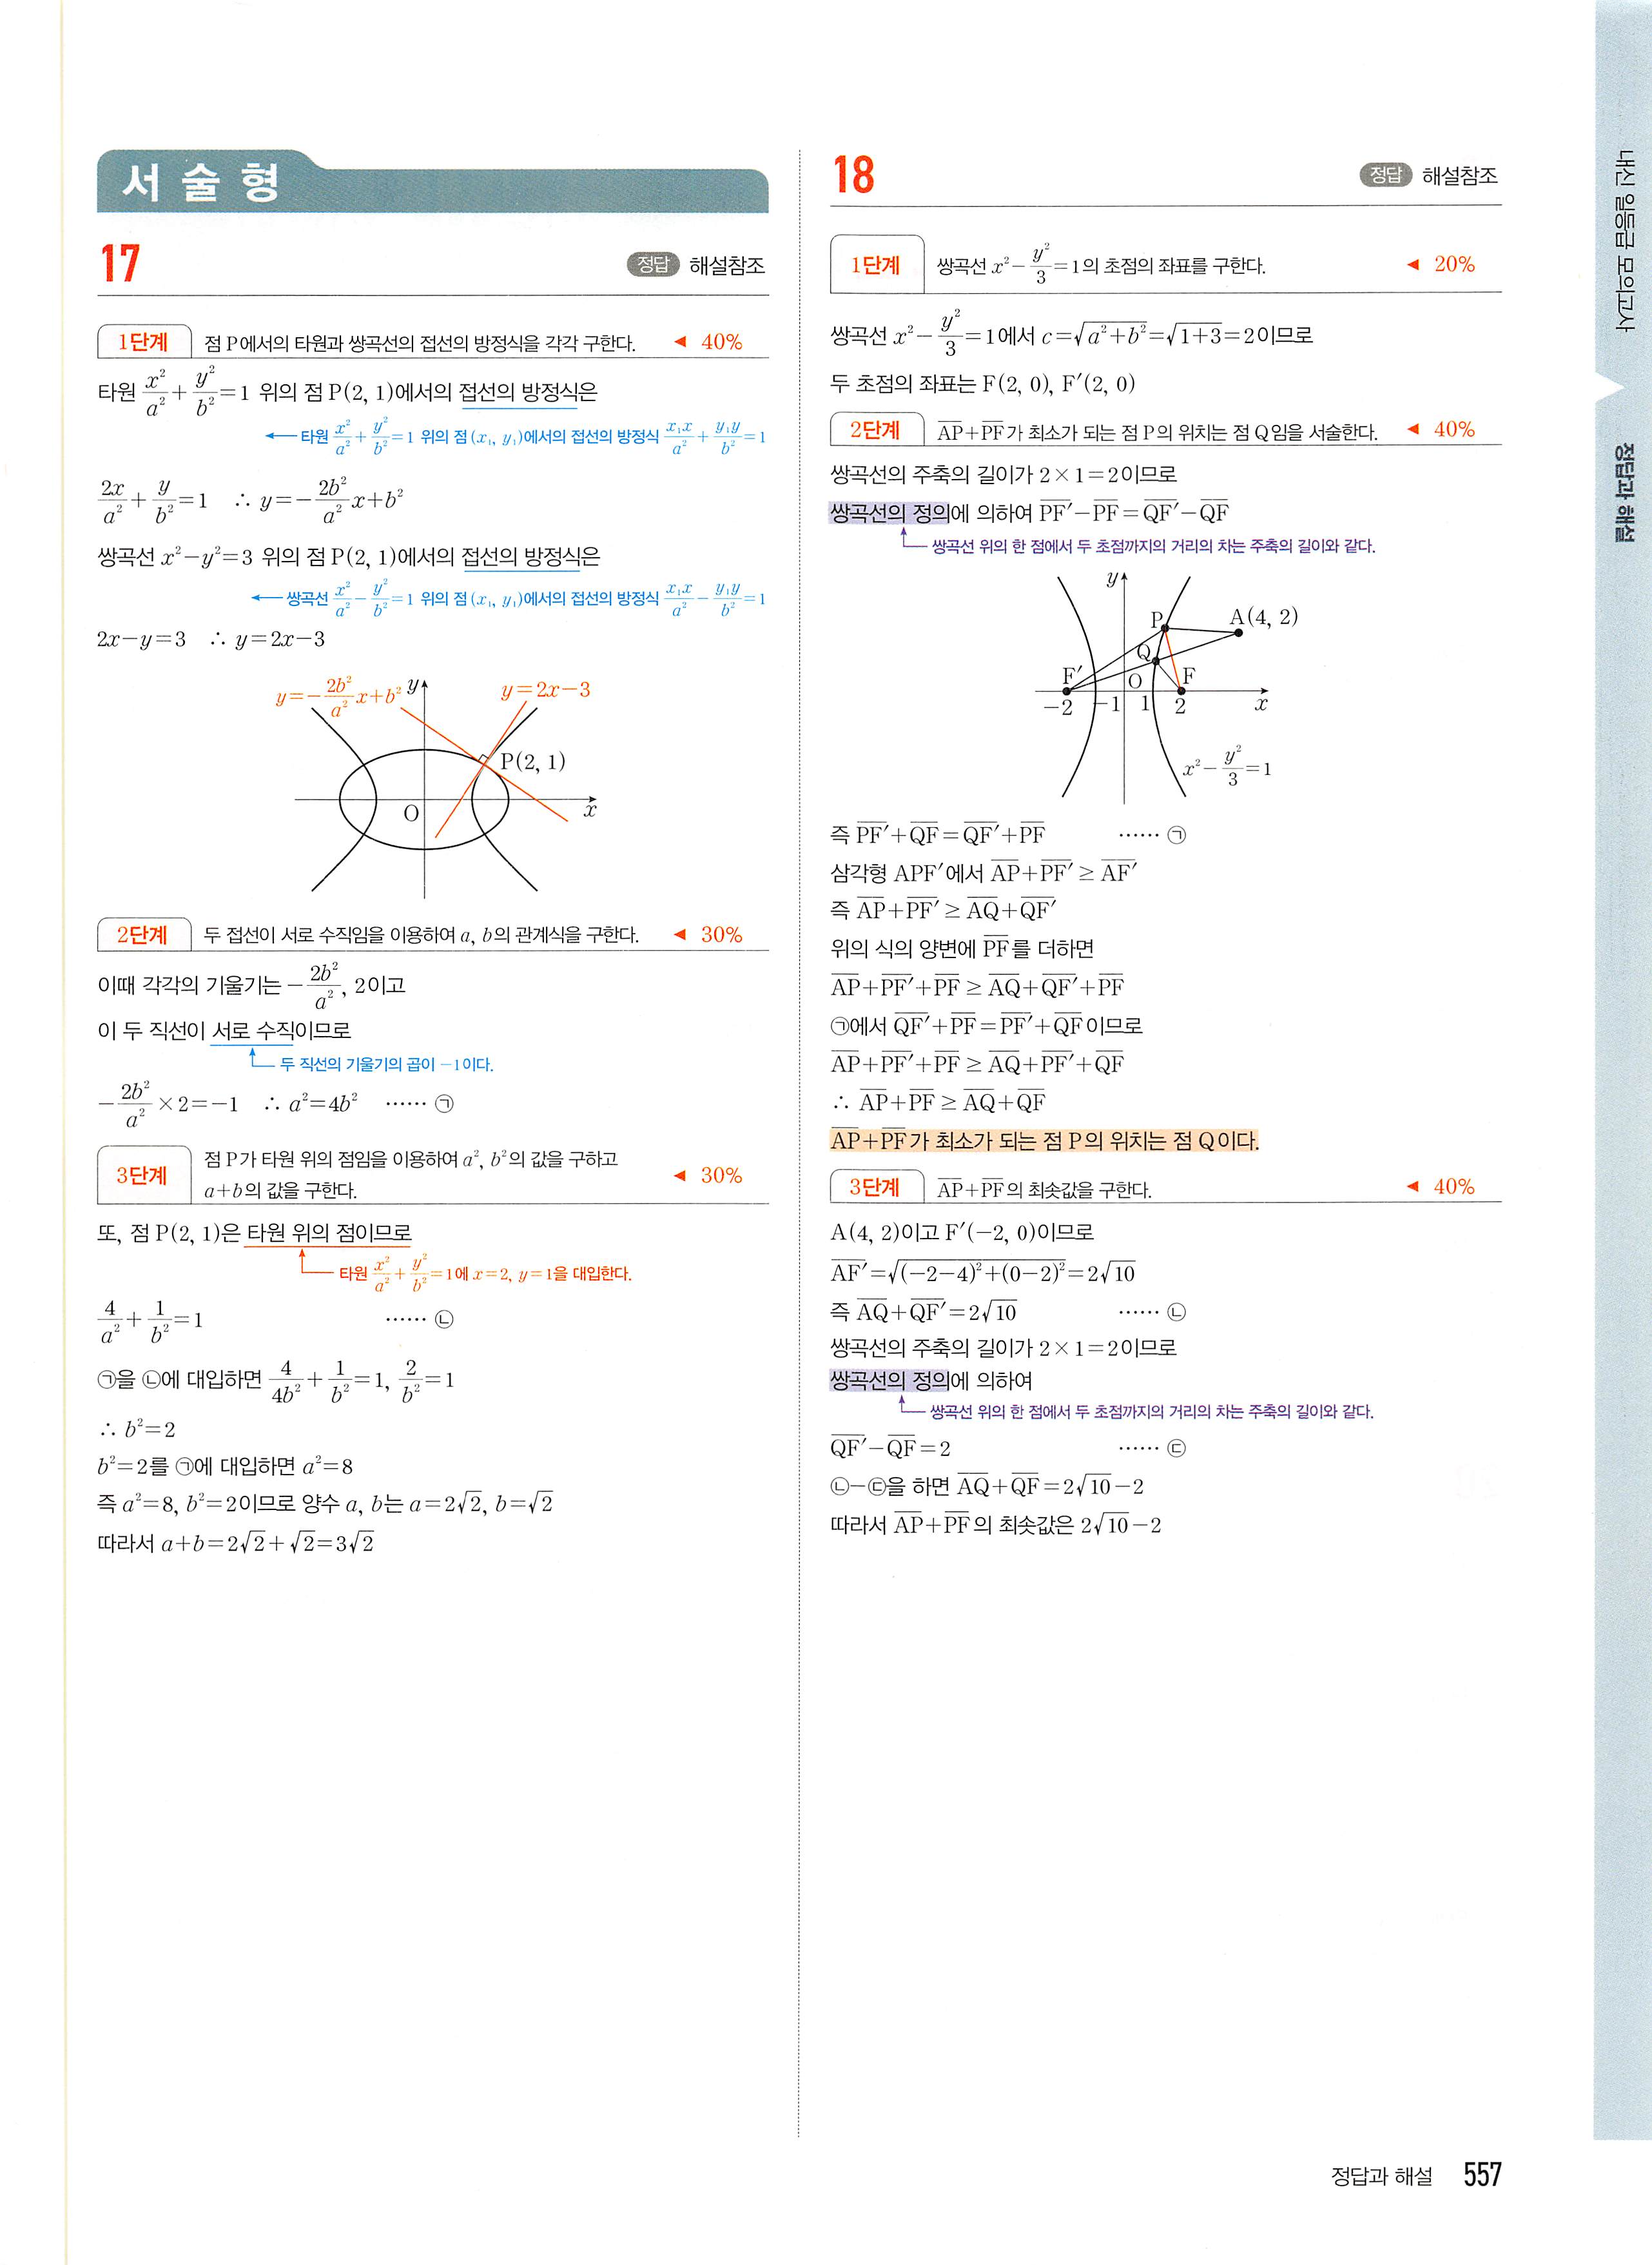 서술형
17
정답 해설참조
1단계 점 P에서의 타원과 쌍곡선의 접선의 방정식을 각각 구한다. ◀ 40%
타원 x²/a² + y²/b² = 1 위의 점 P(2, 1)에서의 접선의 방정식은
← 타원 x²/a² + y²/b² = 1 위의 점 (x₁, y₁)에서의 접선의 방정식 x₁x/a² + y₁y/b² = 1
2x/a² + y/b² = 1 ∴ y = −2b²/a² x + b²
쌍곡선 x²−y²=3 위의 점 P(2, 1)에서의 접선의 방정식은
← 쌍곡선 x²/a² − y²/b² = 1 위의 점 (x₁, y₁)에서의 접선의 방정식 x₁x/a² − y₁y/b² = 1
2x−y=3 ∴ y=2x−3
y = −2b²/a² x + b² y y=2x−3
P(2, 1)
O x
2단계 두 접선이 서로 수직임을 이용하여 a, b의 관계식을 구한다. ◀ 30%
이때 각각의 기울기는 −2b²/a², 2이고
이 두 직선이 서로 수직이므로
두 직선의 기울기의 곱이 −1이다.
−2b²/a² × 2 = −1 ∴ a²=4b² …… ㉠
3단계 점 P가 타원 위의 점임을 이용하여 a², b²의 값을 구하고
a+b의 값을 구한다. ◀ 30%
또, 점 P(2, 1)은 타원 위의 점이므로
타원 x²/a² + y²/b² = 1에 x=2, y=1을 대입한다.
4/a² + 1/b² = 1 …… ㉡
㉠을 ㉡에 대입하면 4/4b² + 1/b² = 1, 2/b² = 1
∴ b²=2
b²=2를 ㉠에 대입하면 a²=8
즉 a²=8, b²=2이므로 양수 a, b는 a=2√2, b=√2
따라서 a+b=2√2+√2=3√2
18
정답 해설참조
1단계 쌍곡선 x² − y²/3 = 1의 초점의 좌표를 구한다. ◀ 20%
쌍곡선 x² − y²/3 = 1에서 c=√(a²+b²)=√(1+3)=2이므로
두 초점의 좌표는 F(2, 0), F′(2, 0)
2단계 A̅P̅+P̅F̅가 최소가 되는 점 P의 위치는 점 Q임을 서술한다. ◀ 40%
쌍곡선의 주축의 길이가 2×1=2이므로
쌍곡선의 정의에 의하여 P̅F̅′−P̅F̅=Q̅F̅′−Q̅F̅
쌍곡선 위의 한 점에서 두 초점까지의 거리의 차는 주축의 길이와 같다.
y
P A(4, 2)
Q
F′ O F
−2 −1 1 2 x
x² − y²/3 = 1
즉 P̅F̅′+Q̅F̅=Q̅F̅′+P̅F̅ …… ㉠
삼각형 APF′에서 A̅P̅+P̅F̅′ ≥ A̅F̅′
즉 A̅P̅+P̅F̅′ ≥ A̅Q̅+Q̅F̅′
위의 식의 양변에 P̅F̅를 더하면
A̅P̅+P̅F̅′+P̅F̅ ≥ A̅Q̅+Q̅F̅′+P̅F̅
㉠에서 Q̅F̅′+P̅F̅=P̅F̅′+Q̅F̅이므로
A̅P̅+P̅F̅′+P̅F̅ ≥ A̅Q̅+P̅F̅′+Q̅F̅
∴ A̅P̅+P̅F̅ ≥ A̅Q̅+Q̅F̅
A̅P̅+P̅F̅가 최소가 되는 점 P의 위치는 점 Q이다.
3단계 A̅P̅+P̅F̅의 최솟값을 구한다. ◀ 40%
A(4, 2)이고 F′(−2, 0)이므로
A̅F̅′=√((−2−4)²+(0−2)²)=2√10
즉 A̅Q̅+Q̅F̅′=2√10 …… ㉡
쌍곡선의 주축의 길이가 2×1=2이므로
쌍곡선의 정의에 의하여
쌍곡선 위의 한 점에서 두 초점까지의 거리의 차는 주축의 길이와 같다.
Q̅F̅′−Q̅F̅=2 …… ㉢
㉡−㉢을 하면 A̅Q̅+Q̅F̅=2√10−2
따라서 A̅P̅+P̅F̅의 최솟값은 2√10−2
내신 일등급 모의고사
정답과 해설
정답과 해설 557